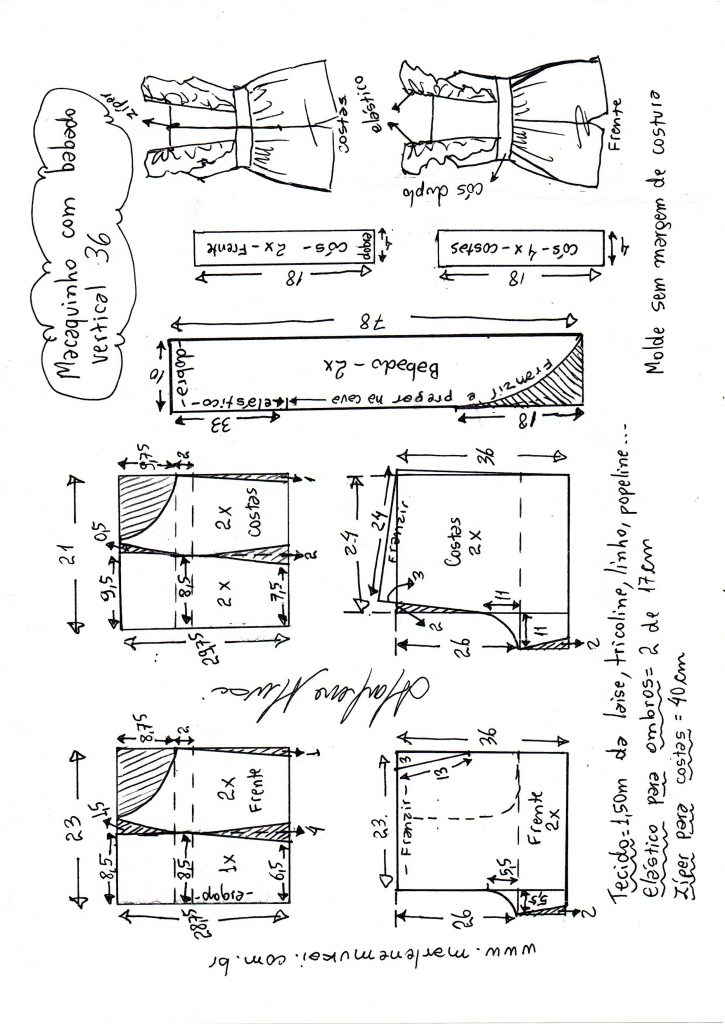 Macaquinho com babado
vertical 36
zíper
costas
elástico
cós duplo
Frente
cós - 2x - Frente
dobra
4
18
cós - 4x - costas
4
18
Molde sem margem de costura
78
dobra
10
Babado - 2x
elástico
pregar na cava
Franzir e
33
18
21
0,5
9,75
2
9,5
8,5
7,5
2x
2x
costas
29,75
2
1
24
24
Franzir
36
3
Costas
2x
2
26
11
11
2
Marlene Mukai
23
1,5
8,75
2
8,5
8,5
6,5
1x
dobra
2x
Frente
28,75
4
1
23
36
3
13
- Franzir -
Frente
2x
5,5
5,5
26
2
Tecido=1,50m da laise, tricoline, linho, popeline...
elástico para ombros= 2 de 17cm
Zíper para costas = 40cm
www.marlenemukai.com.br